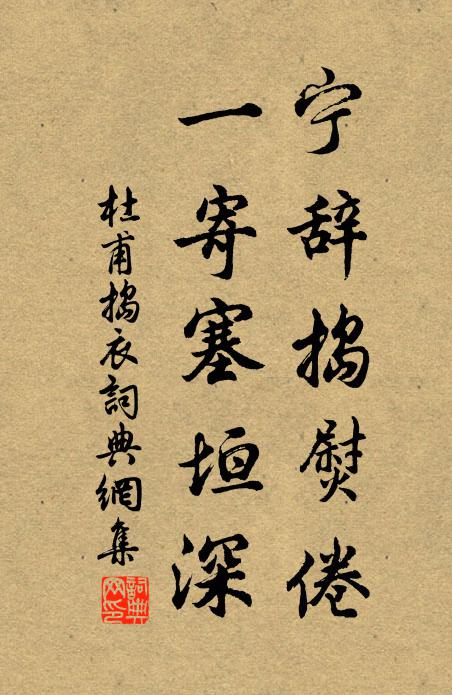 宁辞捣熨倦
一寄塞垣深
杜甫捣衣詞典網集
詞典网印